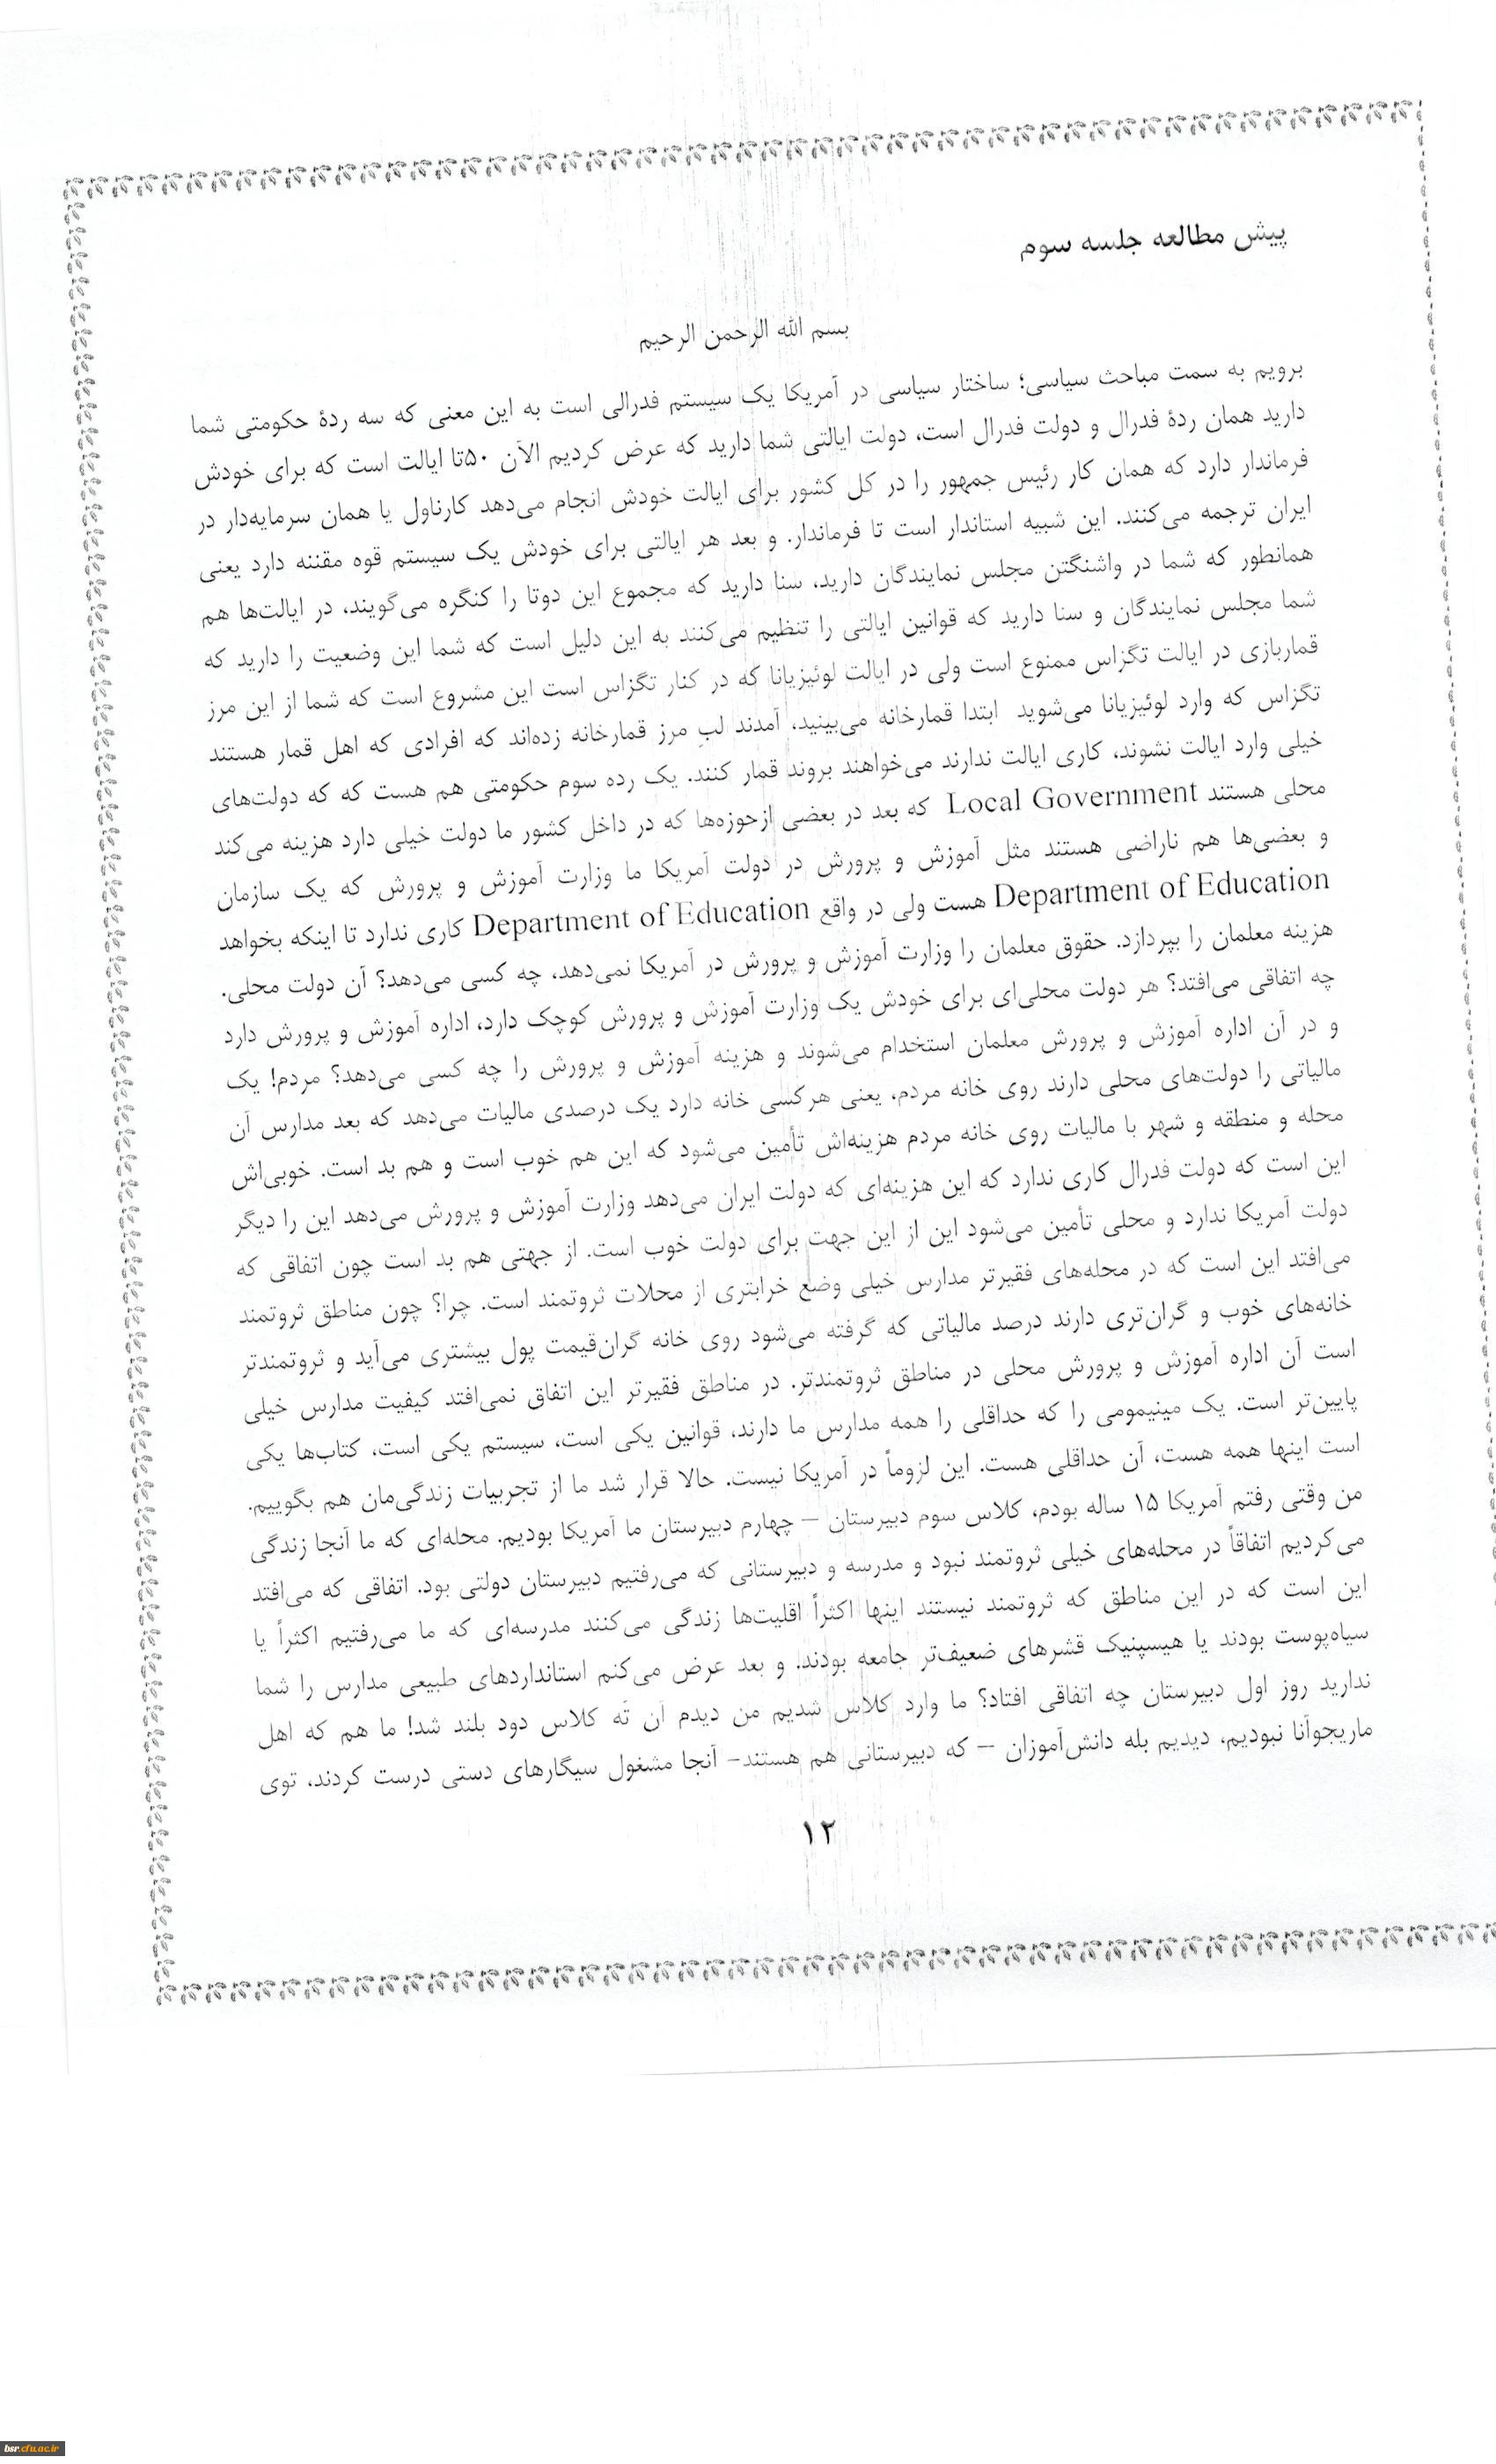 پیش مطالعه جلسه سوم
بسم الله الرحمن الرحیم
برویم به سمت مباحث سیاسی؛ ساختار سیاسی در آمریکا یک سیستم فدرالی است به این معنی که سه ردهٔ حکومتی شما
دارید همان ردهٔ فدرال و دولت فدرال است، دولت ایالتی شما دارید که عرض کردیم الآن ۵۰تا ایالت است که برای خودش
فرماندار دارد که همان کار رئیس جمهور را در کل کشور برای ایالت خودش انجام می‌دهد کارناول یا همان سرمایه‌دار در
ایران ترجمه می‌کنند. این شبیه استاندار است تا فرماندار. و بعد هر ایالتی برای خودش یک سیستم قوه مقننه دارد یعنی
همانطور که شما در واشنگتن مجلس نمایندگان دارید، سنا دارید که مجموع این دوتا را کنگره می‌گویند، در ایالت‌ها هم
شما مجلس نمایندگان و سنا دارید که قوانین ایالتی را تنظیم می‌کنند به این دلیل است که شما این وضعیت را دارید که
قماربازی در ایالت تگزاس ممنوع است ولی در ایالت لوئیزیانا که در کنار تگزاس است این مشروع است که شما از این مرز
تگزاس که وارد لوئیزیانا می‌شوید ابتدا قمارخانه می‌بینید، آمدند لبِ مرز قمارخانه زده‌اند که افرادی که اهل قمار هستند
خیلی وارد ایالت نشوند، کاری ایالت ندارند می‌خواهند بروند قمار کنند. یک رده سوم حکومتی هم هست که که دولت‌های
محلی هستند Local Government که بعد در بعضی ازحوزه‌ها که در داخل کشور ما دولت خیلی دارد هزینه می‌کند
و بعضی‌ها هم ناراضی هستند مثل آموزش و پرورش در دولت آمریکا ما وزارت آموزش و پرورش که یک سازمان
Department of Education هست ولی در واقع Department of Education کاری ندارد تا اینکه بخواهد
هزینه معلمان را بپردازد. حقوق معلمان را وزارت آموزش و پرورش در آمریکا نمی‌دهد، چه کسی می‌دهد؟ آن دولت محلی.
چه اتفاقی می‌افتد؟ هر دولت محلی‌ای برای خودش یک وزارت آموزش و پرورش کوچک دارد، اداره آموزش و پرورش دارد
و در آن اداره آموزش و پرورش معلمان استخدام می‌شوند و هزینه آموزش و پرورش را چه کسی می‌دهد؟ مردم! یک
مالیاتی را دولت‌های محلی دارند روی خانه مردم، یعنی هرکسی خانه دارد یک درصدی مالیات می‌دهد که بعد مدارس آن
محله و منطقه و شهر با مالیات روی خانه مردم هزینه‌اش تأمین می‌شود که این هم خوب است و هم بد است. خوبی‌اش
این است که دولت فدرال کاری ندارد که این هزینه‌ای که دولت ایران می‌دهد وزارت آموزش و پرورش می‌دهد این را دیگر
دولت آمریکا ندارد و محلی تأمین می‌شود این از این جهت برای دولت خوب است. از جهتی هم بد است چون اتفاقی که
می‌افتد این است که در محله‌های فقیرتر مدارس خیلی وضع خرابتری از محلات ثروتمند است. چرا؟ چون مناطق ثروتمند
خانه‌های خوب و گران‌تری دارند درصد مالیاتی که گرفته می‌شود روی خانه گران‌قیمت پول بیشتری می‌آید و ثروتمندتر
است آن اداره آموزش و پرورش محلی در مناطق ثروتمندتر. در مناطق فقیرتر این اتفاق نمی‌افتد کیفیت مدارس خیلی
پایین‌تر است. یک مینیمومی را که حداقلی را همه مدارس ما دارند، قوانین یکی است، سیستم یکی است، کتاب‌ها یکی
است اینها همه هست، آن حداقلی هست. این لزوماً در آمریکا نیست. حالا قرار شد ما از تجربیات زندگی‌مان هم بگوییم.
من وقتی رفتم آمریکا ۱۵ ساله بودم، کلاس سوم دبیرستان – چهارم دبیرستان ما آمریکا بودیم. محله‌ای که ما آنجا زندگی
می‌کردیم اتفاقاً در محله‌های خیلی ثروتمند نبود و مدرسه و دبیرستانی که می‌رفتیم دبیرستان دولتی بود. اتفاقی که می‌افتد
این است که در این مناطق که ثروتمند نیستند اینها اکثراً اقلیت‌ها زندگی می‌کنند مدرسه‌ای که ما می‌رفتیم اکثراً یا
سیاه‌پوست بودند یا هیسپنیک قشرهای ضعیف‌تر جامعه بودند. و بعد عرض می‌کنم استانداردهای طبیعی مدارس را شما
ندارید روز اول دبیرستان چه اتفاقی افتاد؟ ما وارد کلاس شدیم من دیدم آن تَه کلاس دود بلند شد! ما هم که اهل
ماریجوآنا نبودیم، دیدیم بله دانش‌آموزان – که دبیرستانی هم هستند- آنجا مشغول سیگارهای دستی درست کردند، توی
۱۲
bsr.cfu.ac.ir